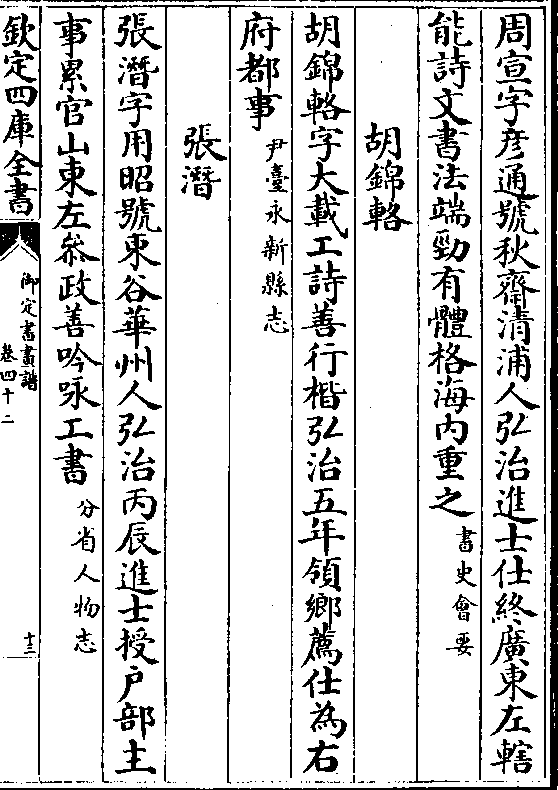 周宣字彦通號秋齋清浦人弘治進士仕終廣東左轄
能詩文書法端勁有體格海内重之書史會要
胡錦輅
胡錦輅字大載工詩善行楷弘治五年領鄉薦仕為右
府都事尹臺永新縣志
張潛
張潛字用昭號東谷華州人弘治丙辰進士授户部主
事累官山東左叅政善吟咏工書分省人物志
欽定四庫全書
御定書畫譜
卷四十二
十三